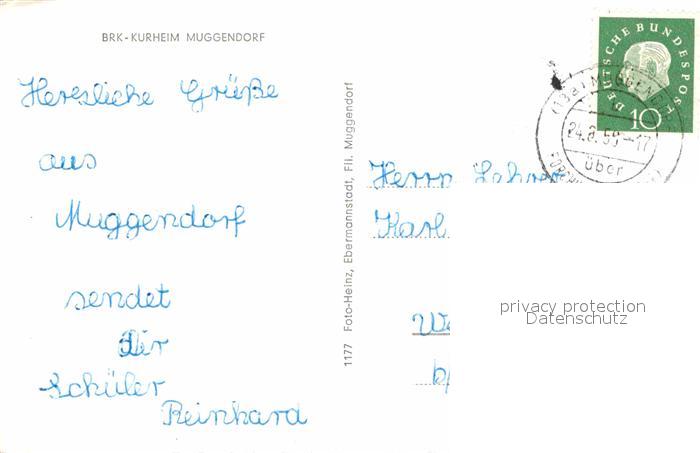 BRK-KURHEIM MUGGENDORF
Herzliche Grüße
aus
Muggendorf
sendet
Dir
Schüler
Reinhard
1177 Foto-Heinz, Ebermannstadt, Fil. Muggendorf
DEUTSCHE BUNDESPOST
10
(13a) MUGGENDORF
24.8.59-17
über
Herrn Lehrer
Karl
privacy protection
Datenschutz